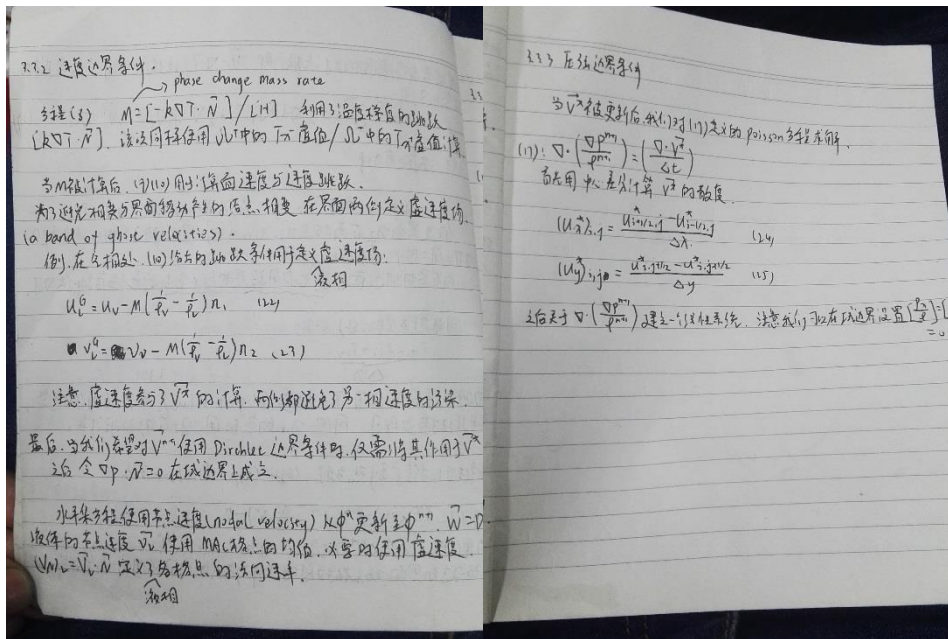 3.3.2 速度边界条件.
→ phase change mass rate
方程(8) M=[-k∇T·N⃗]/[H] 利用了温度梯度的跳跃
[k∇T·N⃗]. 该次同样使用 Ω⁻中的 虚值/Ω⁺中的 虚值计算.
当M被计算后, (9)(10)用于计算面速度与速度跳跃.
为了避免相变分界面移动产生的 相变, 在界面两侧定义虚速度场
(a band of ghost velocities).
例, 在 相处, (10)给出的跳跃条件用于定义液相虚速度场:
u_L^G = u_V - M(1/ρ_V - 1/ρ_L)n₁ (22)
v_L^G = v_V - M(1/ρ_V - 1/ρ_L)n₂ (23)
注意. 虚速度参与了V⃗*的计算. 两侧都避免了另一相速度的污染.
最后. 当我们希望对V⃗ⁿ⁺¹使用Dirchlec边界条件时. 仅需将其作用于V⃗*
之后 令∇p·N⃗=0在域边界上成立.
水平集方程使用节点速度(nodal velocity) 从φⁿ更新至φⁿ⁺¹. W⃗=D
液体的节点速度 V⃗_L 使用MAC格点的均值. 必要时使用虚速度.
(V_N)_L=V⃗_L·N⃗ 定义了各格点的液相法向速率.
3.3.3 压强边界条件
当V⃗*被更新后, 我们对(17)定义的poisson方程求解.
(17): ∇·(∇pⁿ⁺¹/ρⁿ⁺¹)=(∇·V⃗*/Δt)
首先用中心差分计算V⃗*的散度.
(u_x*)i,j = (u*i+1/2,j - u*i-1/2,j)/Δx (24)
(u_y*)i,j = (u*i,j+1/2 - u*i,j+1/2)/Δy (25)
之后关于∇·(∇pⁿ⁺¹/ρⁿ⁺¹)建立一个线性系统. 注意我们可以在域边界设置[p_x/ρ]=[
=0